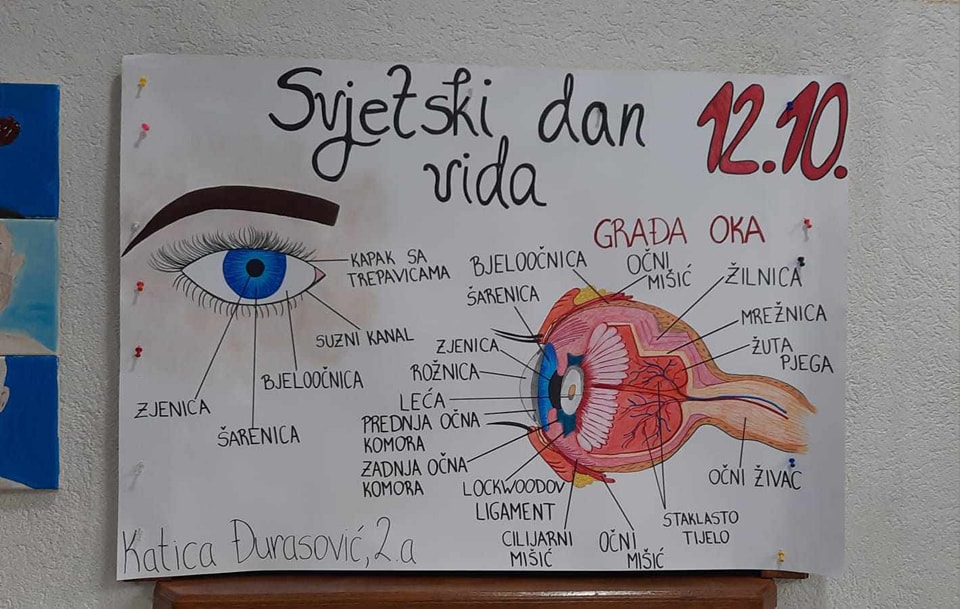 Svjetski dan
vida
12.10.
KAPAK SA
TREPAVICAMA
SUZNI KANAL
BJELOOČNICA
ZJENICA
ŠARENICA
GRAĐA OKA
BJELOOČNICA
OČNI
MIŠIĆ
ŽILNICA
ŠARENICA
MREŽNICA
ZJENICA
ŽUTA
PJEGA
ROŽNICA
LEĆA
PREDNJA OČNA
KOMORA
ZADNJA OČNA
KOMORA
OČNI ŽIVAC
LOCKWOODOV
LIGAMENT
STAKLASTO
TIJELO
CILIJARNI
MIŠIĆ
OČNI
MIŠIĆ
Katica Đurasović, 2.a